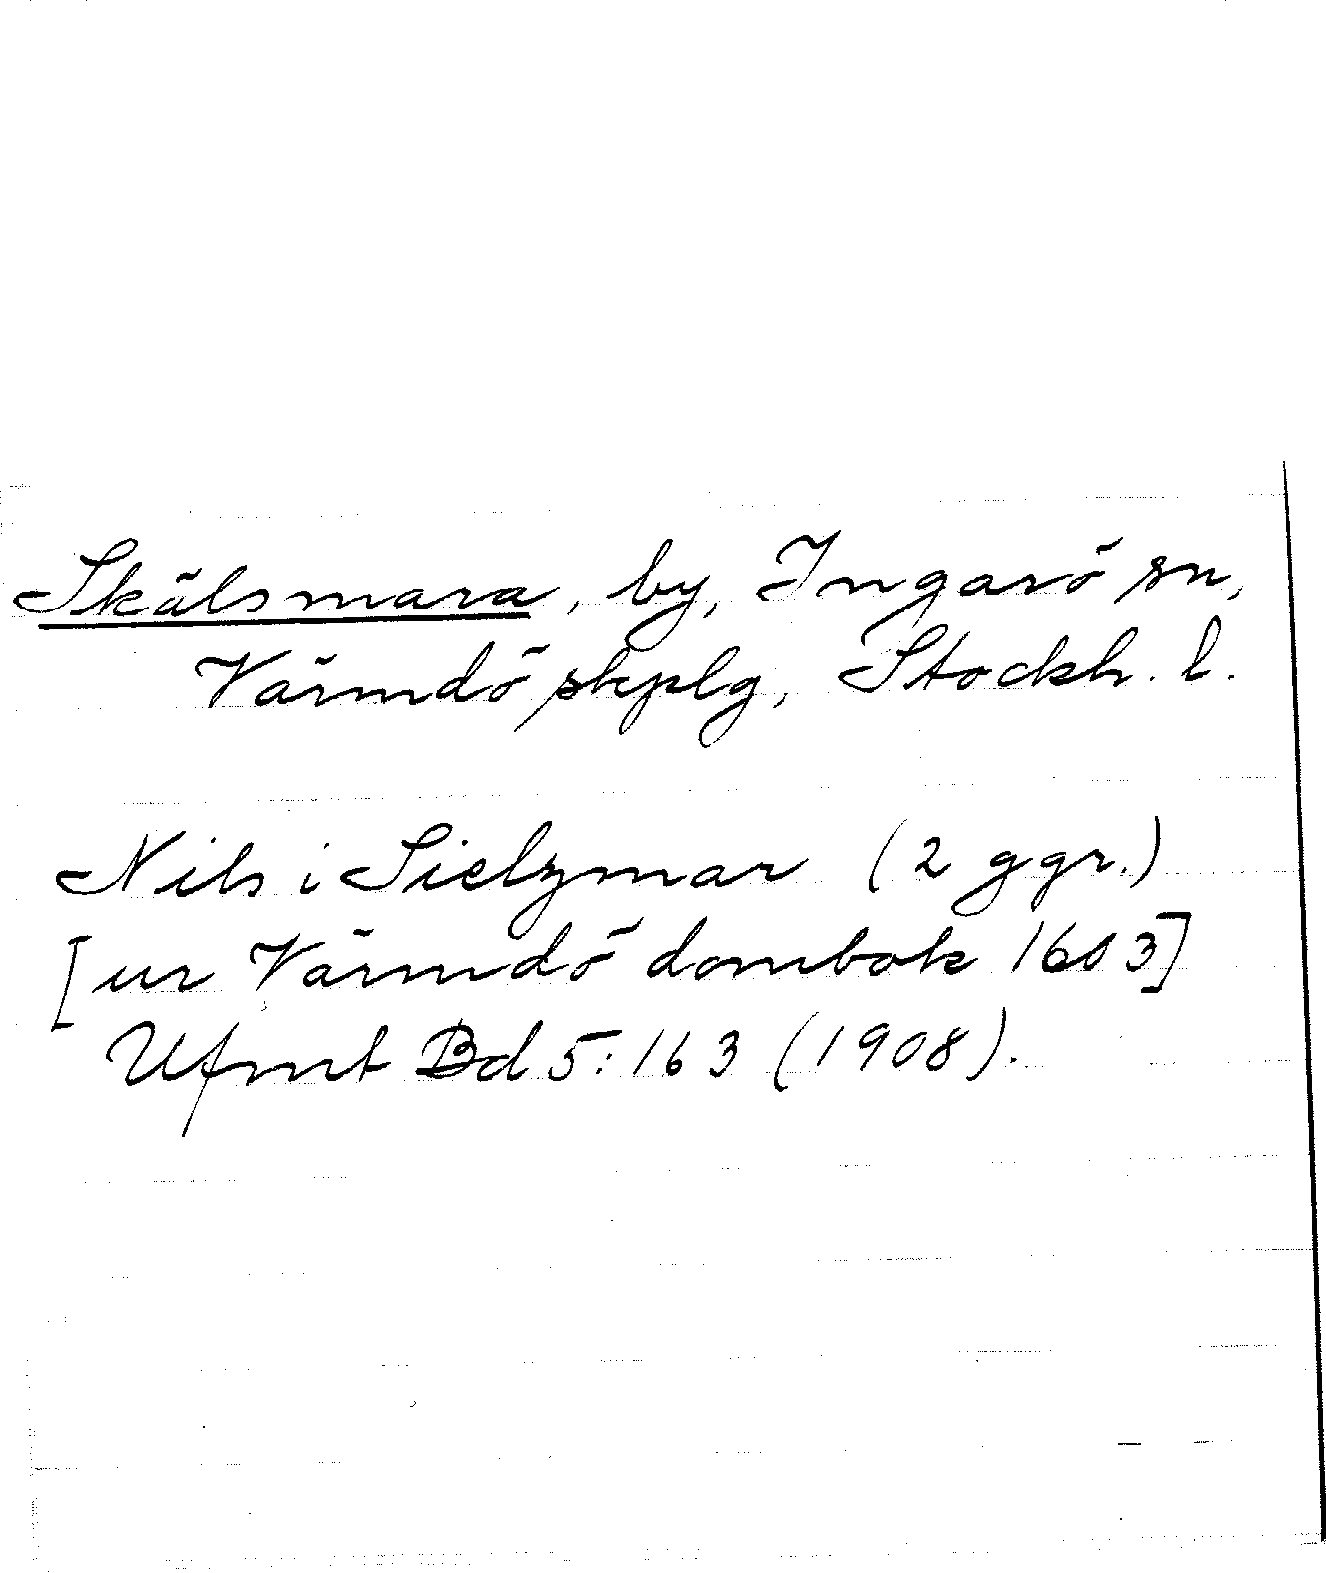 Skälsmara, by, Ingarö sn,
Värmdö skplg, Stockh. l.
Nils i Sielzmar (2 ggr.)
[ur Värmdö dombok 1603]
Ufmt Bd 5:163 (1908).